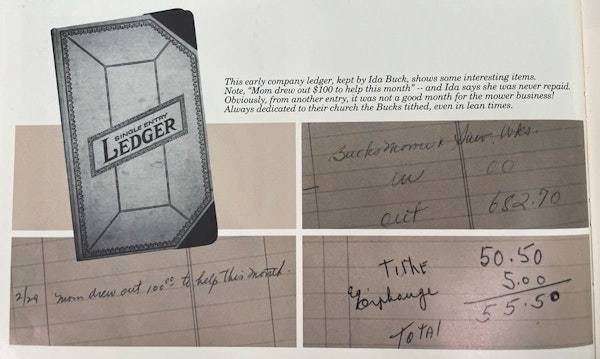 This early company ledger, kept by Ida Buck, shows some interesting items.
Note, "Mom drew out $100 to help this month" -- and Ida says she was never repaid.
Obviously, from another entry, it was not a good month for the mower business!
Always dedicated to their church the Bucks tithed, even in lean times.
SINGLE ENTRY
LEDGER
Bucks Mower & Wks.
in 00
out 682.70
2/29 Mom drew out 100⁰⁰ to help this month.
TITHE 50.50
5.00
TOTAL 55.50